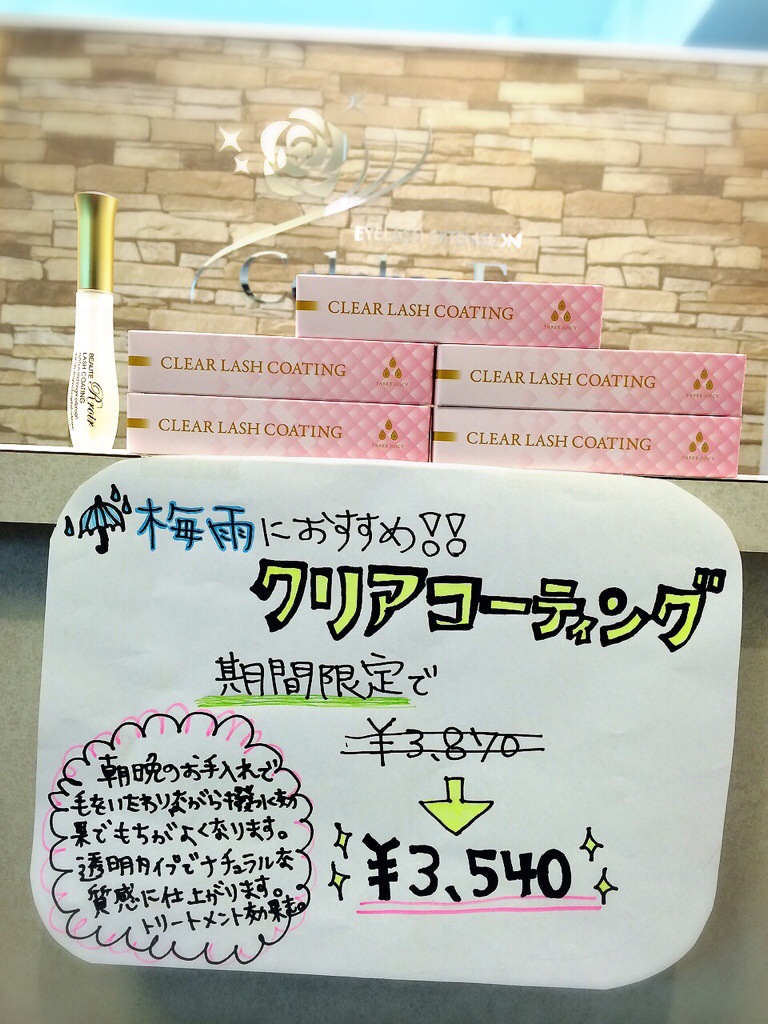 EYELASH EXTENSION
CLEAR LASH COATING
THREE JUICY
CLEAR LASH COATING
THREE JUICY
CLEAR LASH COATING
THREE JUICY
CLEAR LASH COATING
THREE JUICY
CLEAR LASH COATING
THREE JUICY
BEAUTE
LASH COATING
梅雨におすすめ!!
クリアコーティング
期間限定で
¥3,870
¥3,540
朝晩のお手入れで
毛をいたわりながら撥水効
果でもちがよくなります。
透明タイプでナチュラルな
質感に仕上がります。
トリートメント効果も。